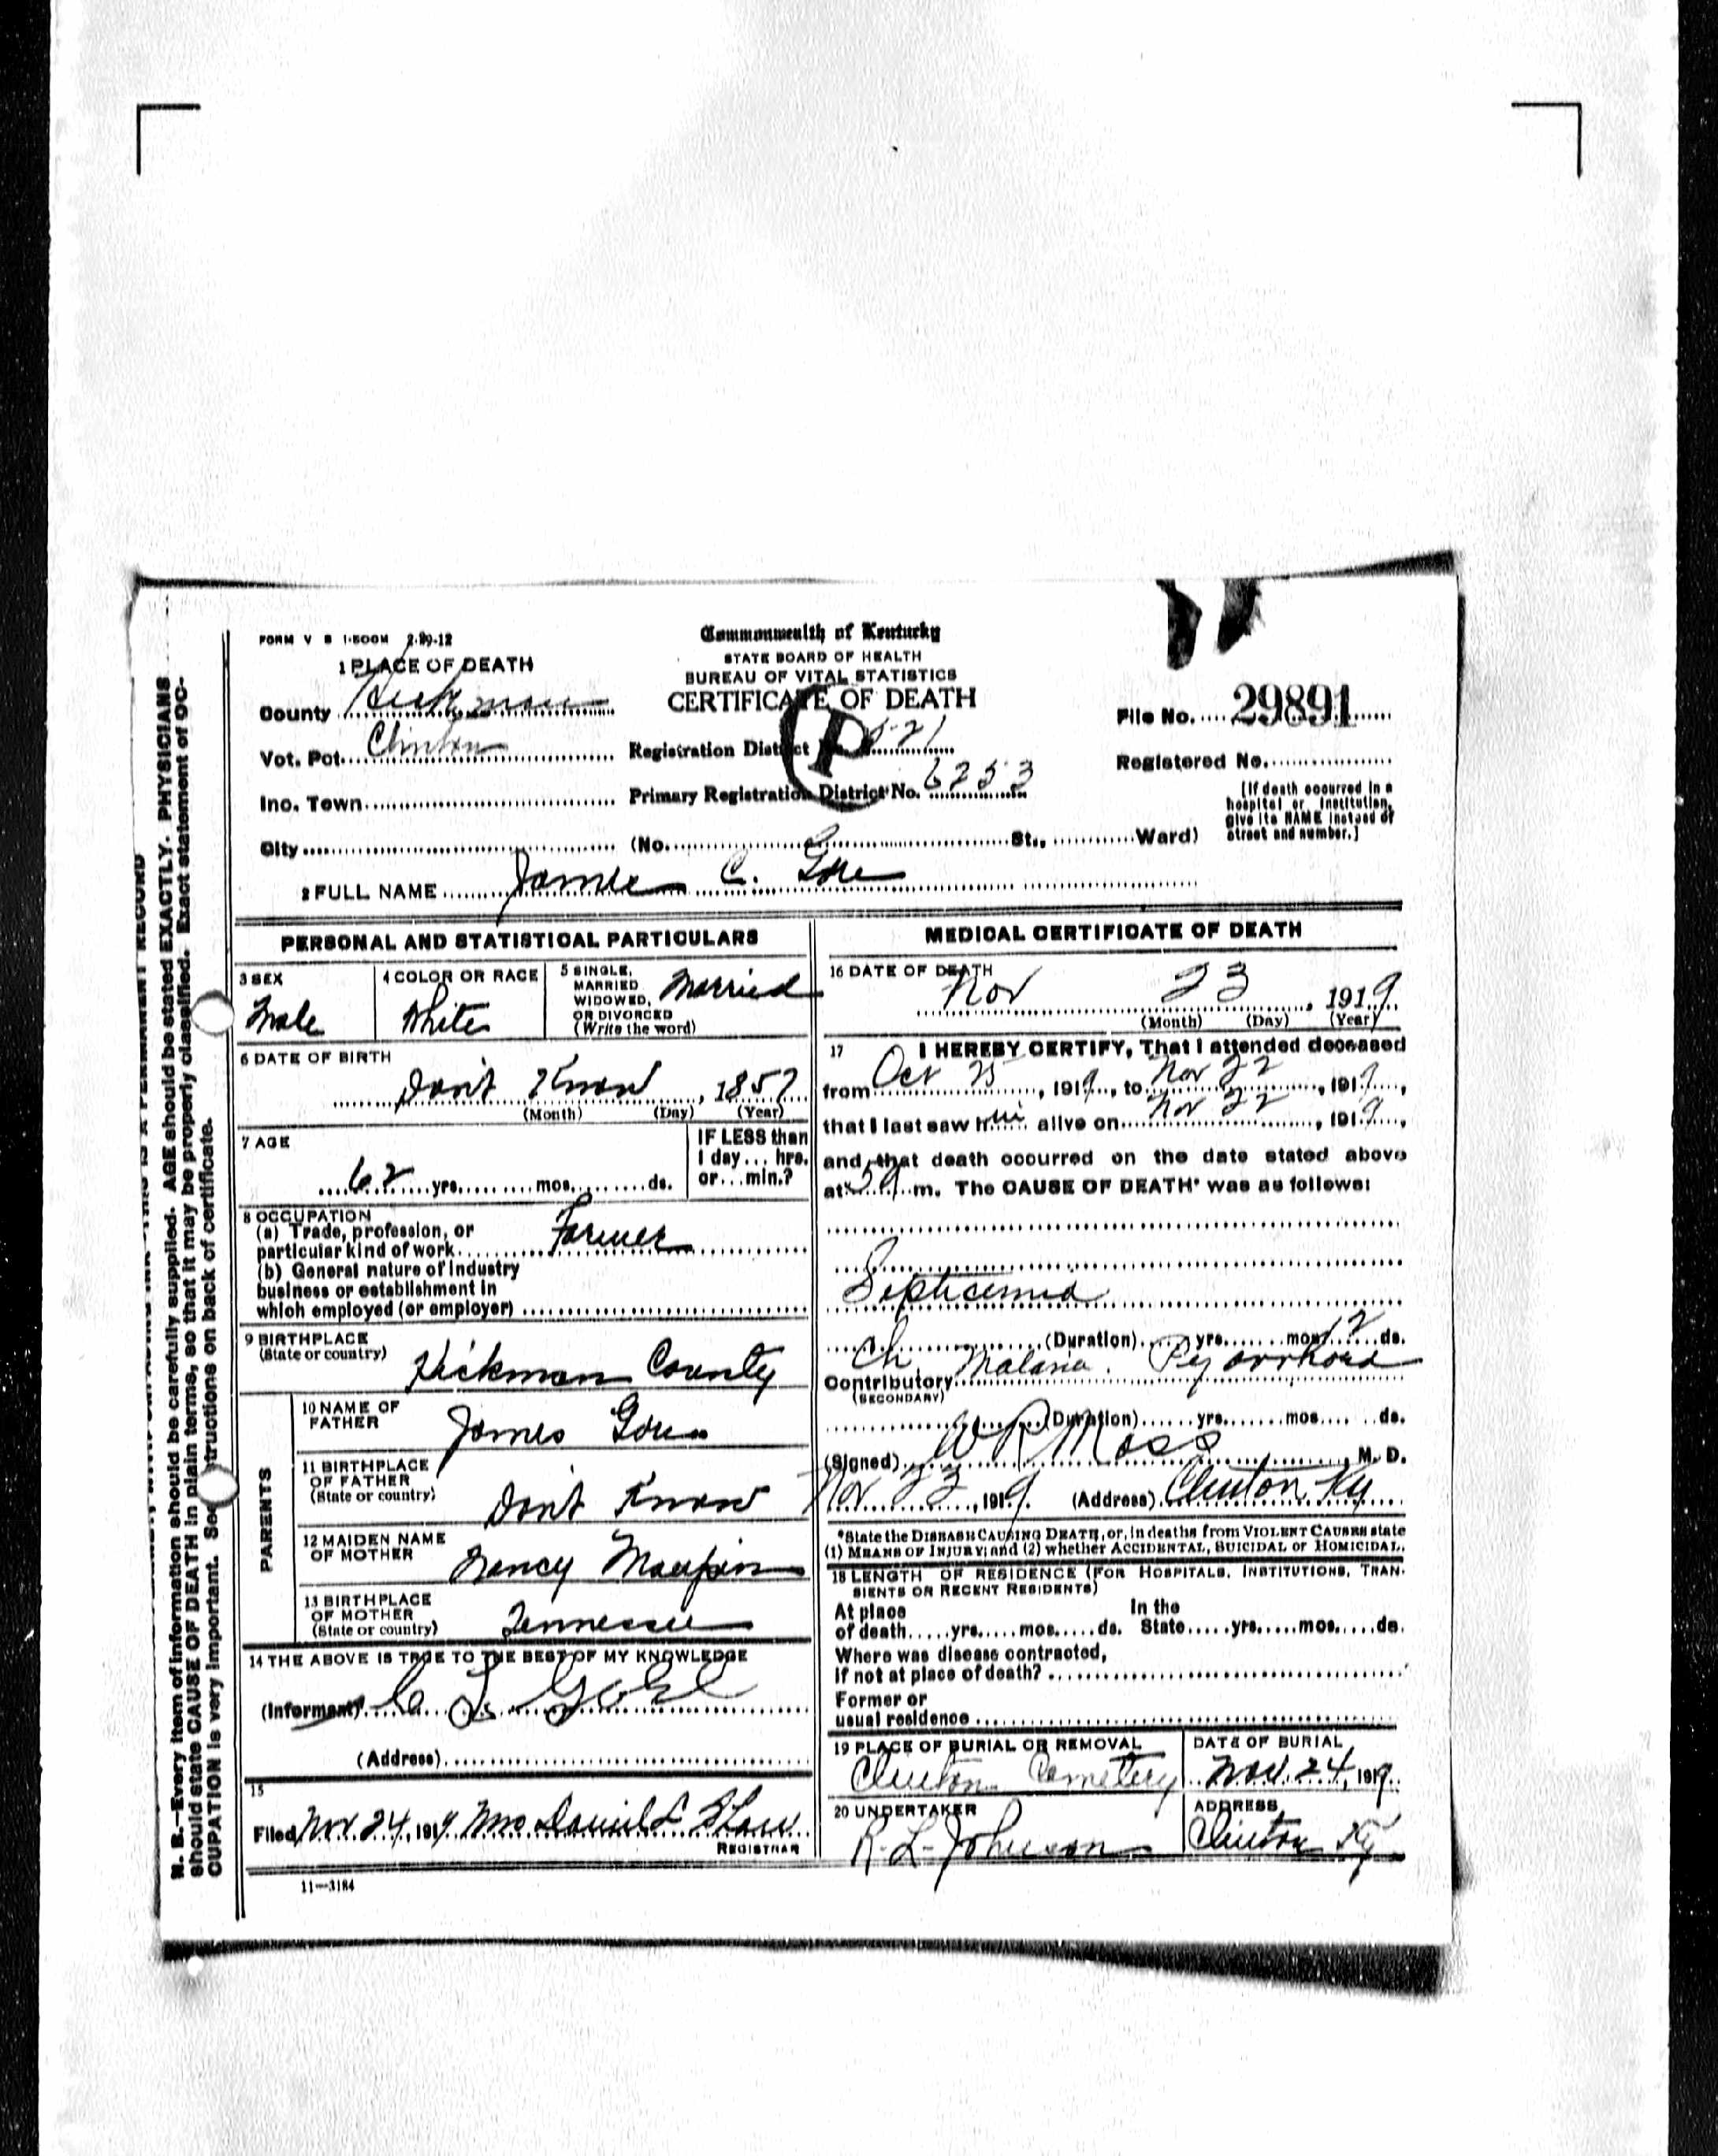 FORM V S 1-500M 2-29-12
Commonwealth of Kentucky
STATE BOARD OF HEALTH
BUREAU OF VITAL STATISTICS
CERTIFICATE OF DEATH
1 PLACE OF DEATH
County Hickman
Vot. Pct. Clinton
Inc. Town
City
Registration District 521
Primary Registration District No. 6253
(No. St., Ward)
File No. 29891
Registered No.
[If death occurred in a
hospital or institution,
give its NAME instead of
street and number.]
2 FULL NAME James C. Gore
PERSONAL AND STATISTICAL PARTICULARS
3 SEX
Male
4 COLOR OR RACE
White
5 SINGLE,
MARRIED
WIDOWED,
OR DIVORCED
(Write the word)
Married
6 DATE OF BIRTH
Don't Know, 1857
(Month) (Day) (Year)
7 AGE
62 yrs. mos. ds.
IF LESS than
1 day... hrs.
or...min.?
8 OCCUPATION
(a) Trade, profession, or
particular kind of work Farmer
(b) General nature of industry
business or establishment in
which employed (or employer)
9 BIRTHPLACE
(State or country) Hickman County
PARENTS
10 NAME OF
FATHER James Gore
11 BIRTHPLACE
OF FATHER
(State or country) Don't Know
12 MAIDEN NAME
OF MOTHER Nancy Maupin
13 BIRTHPLACE
OF MOTHER
(State or country) Tennessee
14 THE ABOVE IS TRUE TO THE BEST OF MY KNOWLEDGE
(Informant) C. L. Gore
(Address)
15
Filed Nov 24, 1919
REGISTRAR
11-3184
MEDICAL CERTIFICATE OF DEATH
16 DATE OF DEATH
Nov 23, 1919
(Month) (Day) (Year)
17 I HEREBY CERTIFY, That I attended deceased
from Oct 25, 1919, to Nov 22, 1919,
that I last saw him alive on Nov 22, 1919,
and that death occurred on the date stated above
at m. The CAUSE OF DEATH* was as follows:
Septicemia
(Duration) yrs. mos. 12 ds.
Contributory Ch. Malaria. Pyorrhoea
(SECONDARY)
(Duration) yrs. mos. ds.
(Signed) W R Moss, M. D.
Nov 23, 1919. (Address) Clinton Ky
*State the DISEASE CAUSING DEATH, or, in deaths from VIOLENT CAUSES state
(1) MEANS OF INJURY; and (2) whether ACCIDENTAL, SUICIDAL or HOMICIDAL.
18 LENGTH OF RESIDENCE (FOR HOSPITALS, INSTITUTIONS, TRAN-
SIENTS OR RECENT RESIDENTS)
At place In the
of death.....yrs.....mos.....ds. State.....yrs.....mos.....ds.
Where was disease contracted,
if not at place of death?
Former or
usual residence
19 PLACE OF BURIAL OR REMOVAL
Clinton Cemetery
DATE OF BURIAL
Nov. 24, 1919
20 UNDERTAKER
R. L. Johnson
ADDRESS
Clinton Ky
N. B.—Every item of information should be carefully supplied. AGE should be stated EXACTLY. PHYSICIANS
should state CAUSE OF DEATH in plain terms, so that it may be properly classified. Exact statement of OC-
CUPATION is very important. See instructions on back of certificate.